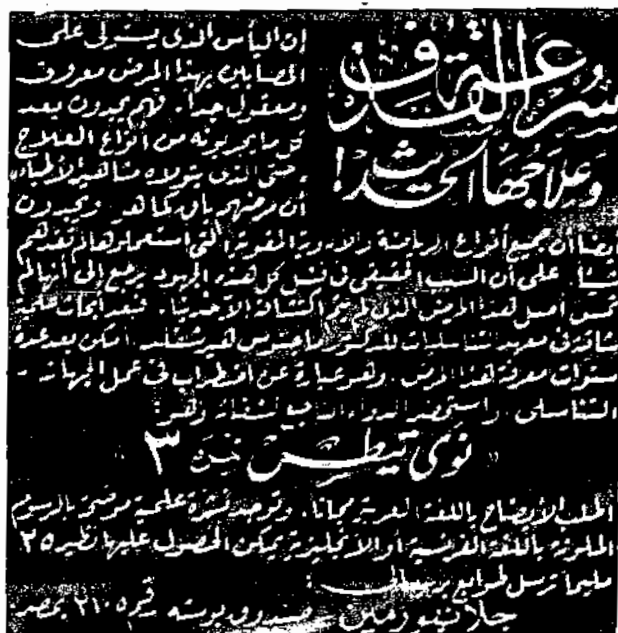 سرعة القذف
وعلاجها الحديث!
إن اليأس الذى يستولى على
المصابين بهذا المرض معروف
ومعقول جداً. فهم يجدون بعد
كل ما يجربونه من أنواع العلاج
حتى الذى يتولاه مشاهير الأطباء
أن مرضهم باق كما هو. ويجدون
أيضا أن جميع أنواع الرياضة والأدوية المقوية التى استعملوها لم تفدهم
شيئا. على أن السبب الحقيقى فى فشل كل هذه الجهود يرجع إلى أنها لم
تمس أصل هذا المرض الذى لم يتم اكتشافه الا حديثا. فبعد أبحاث علمية
شاقة فى معهد التناسليات للدكتور ماجنوس هيرشفلد، أمكن بعد عدة
سنوات معرفة هذا المرض. وهو عبارة عن اضطراب فى عمل الجهاز
التناسلى، واستحضر الدواء الناجع لشفائه وهو:
" نوى تيطس نمرة ٣ "
اطلب الأيضاح باللغة العربية مجانا. وتوجد نشرة علمية موضحة بالرسوم
الملونة باللغة الفرنسية أو الانجليزية يمكن الحصول عليها نظير ٢٥
مليما ترسل طوابع بريد إلى:
جلانيدو رمين صندوق بوسته رقم ٢١٠٥ بمصر